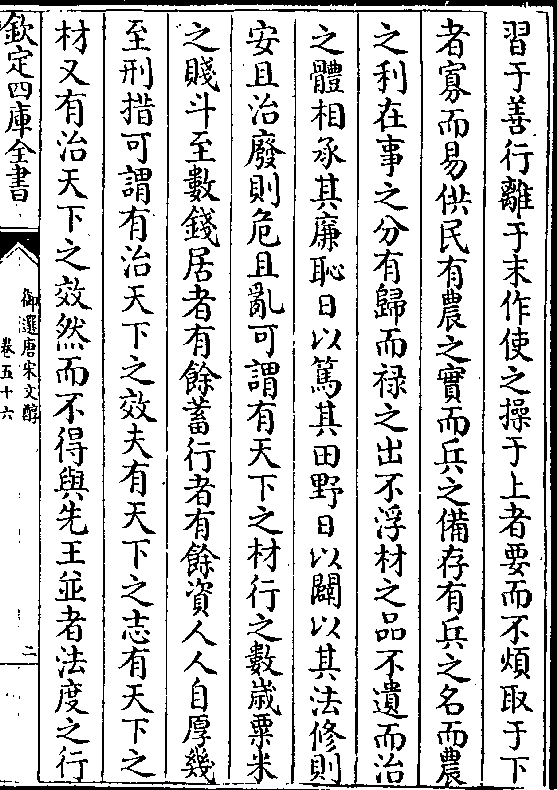 習于善行離于末作使之操于上者要而不煩取于下
者寡而易供民有農之實而兵之備存有兵之名而農
之利在事之分有歸而祿之出不浮材之品不遺而治
之體相承其廉恥日以篤其田野日以闢以其法修則
安且治廢則危且亂可謂有天下之材行之數歲粟米
之賤斗至數錢居者有餘蓄行者有餘資人人自厚幾
至刑措可謂有治天下之效夫有天下之志有天下之
材又有治天下之效然而不得與先王並者法度之行
欽定四庫全書
御選唐宋文醇
卷五十六
二